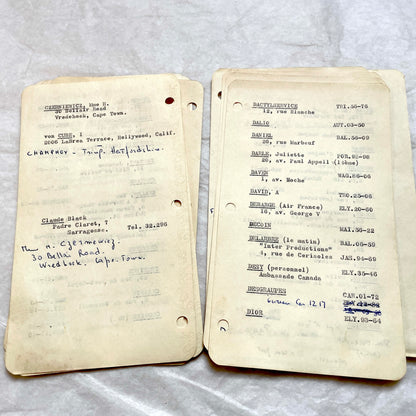 CZERNIEWICZ, Mme H.
30 Bellair Road
Vredehoek, Cape Town.
von CUBE, I
2006 LaBrea Terrace, Hollywood, Calif.
CHAMPNEY - Tring. Hertfordshire.
Claude Black
Padre Claret, 7
Sarragosse. Tel. 32.296
Mme H. Czerniewicz
30 Bellair Road
Vredehoek. Cape Town.
DACTYLSERVICE TRI.56-75
12, rue Blanche
DALIC AUT.03-50
DANIEL BAL.56-69
28, rue Marbeuf
DARLE, Juliette POR.92-96
26, av. Paul Appell (14ème)
DAVEN WAG.86-66
1, av. Moche
DAVID, A TRO.25-66
DEBARGE (Air France) ELY.20-60
16, av. George V
DECOIN MAI.56-22
DELABRRE (le matin) BAL.06-59
"Inter Productions"
4, rue de Cerisoles JAS.94-69
DESY (personnel) ELY.35-46
Ambassade Canada
DESGRAUPES CAR.01-72
bureau Car 12 17
DIOR ELY.93-64